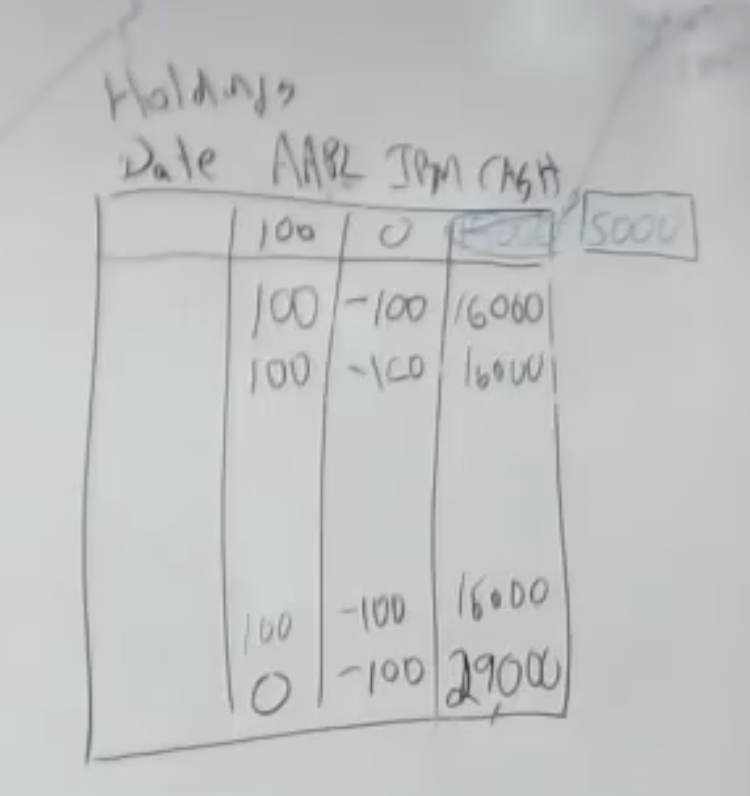 Holdings
Date AAPL IBM CASH
100 0 5000
100 -100 16000
100 -100 16000
100 -100 16000
0 -100 29,000